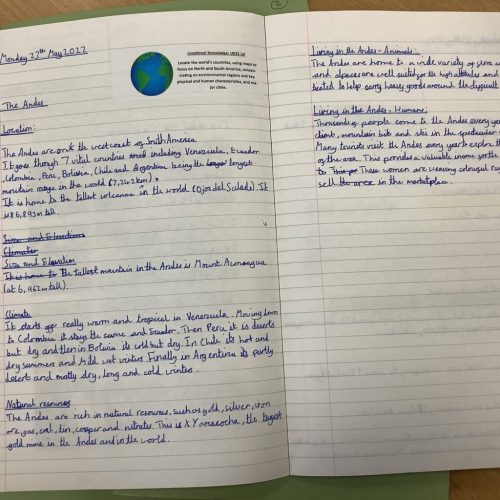 2
Monday 27th May 2022
Locational Knowledge: UKS2 (a)
Locate the world's countries, using maps to
focus on North and South America, concen-
trating on environmental regions and key
physical and human characteristics, and ma-
jor cities.
The Andes
Location:
The Andes are on the west coast of South America
It goes through 7 vital countries including Venezuela, Ecuador
Colombia, Peru, Bolivia, Chile and Argentina being the longest
mountain range in the world (7,242km).
It is home to the tallest volcanoe in the world (Ojos del Salado). It
is 6,893m tall.
Size and Elevation
Climate
Size and Elevation
It is home to the tallest mountain in the Andes is Mount Aconcagua
(at 6,962m tall).
Climate
It starts off really warm and tropical in Venezuela. Moving down
to Colombia it stays the same and Ecuador. Then Peru it is deserts
but dry and then in Bolivia its cold but dry. In Chile its hot and
dry summers and mild wet winters. Finally in Argentina its partly
desert and mostly dry, long and cold winters.
Natural resources
The Andes are rich in natural resources, such as gold, silver, iron
ore, gas, coal, tin, copper and nitrates. This is Yanacocha, the biggest
gold mine in the Andes and in the world.
Living in the Andes - Animals:
The Andes are home to a wide variety of
and alpacas are well suited for the high altitudes and
to help carry heavy goods around the difficult
Living in the Andes - Humans:
Thousands of people come to the Andes every year
climb, mountain bike and ski in the spectacular
Many tourists visit the Andes every year to explore th
of the area. This provides a valuable income for the
to These women are weaving colourful rug
sell in the marketplace.